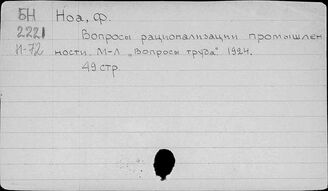 БН Ноа, Ф.
2221 Вопросы рационализации промышлен
И-72 ности. М-Л "Вопросы труда" 1924.
49 стр